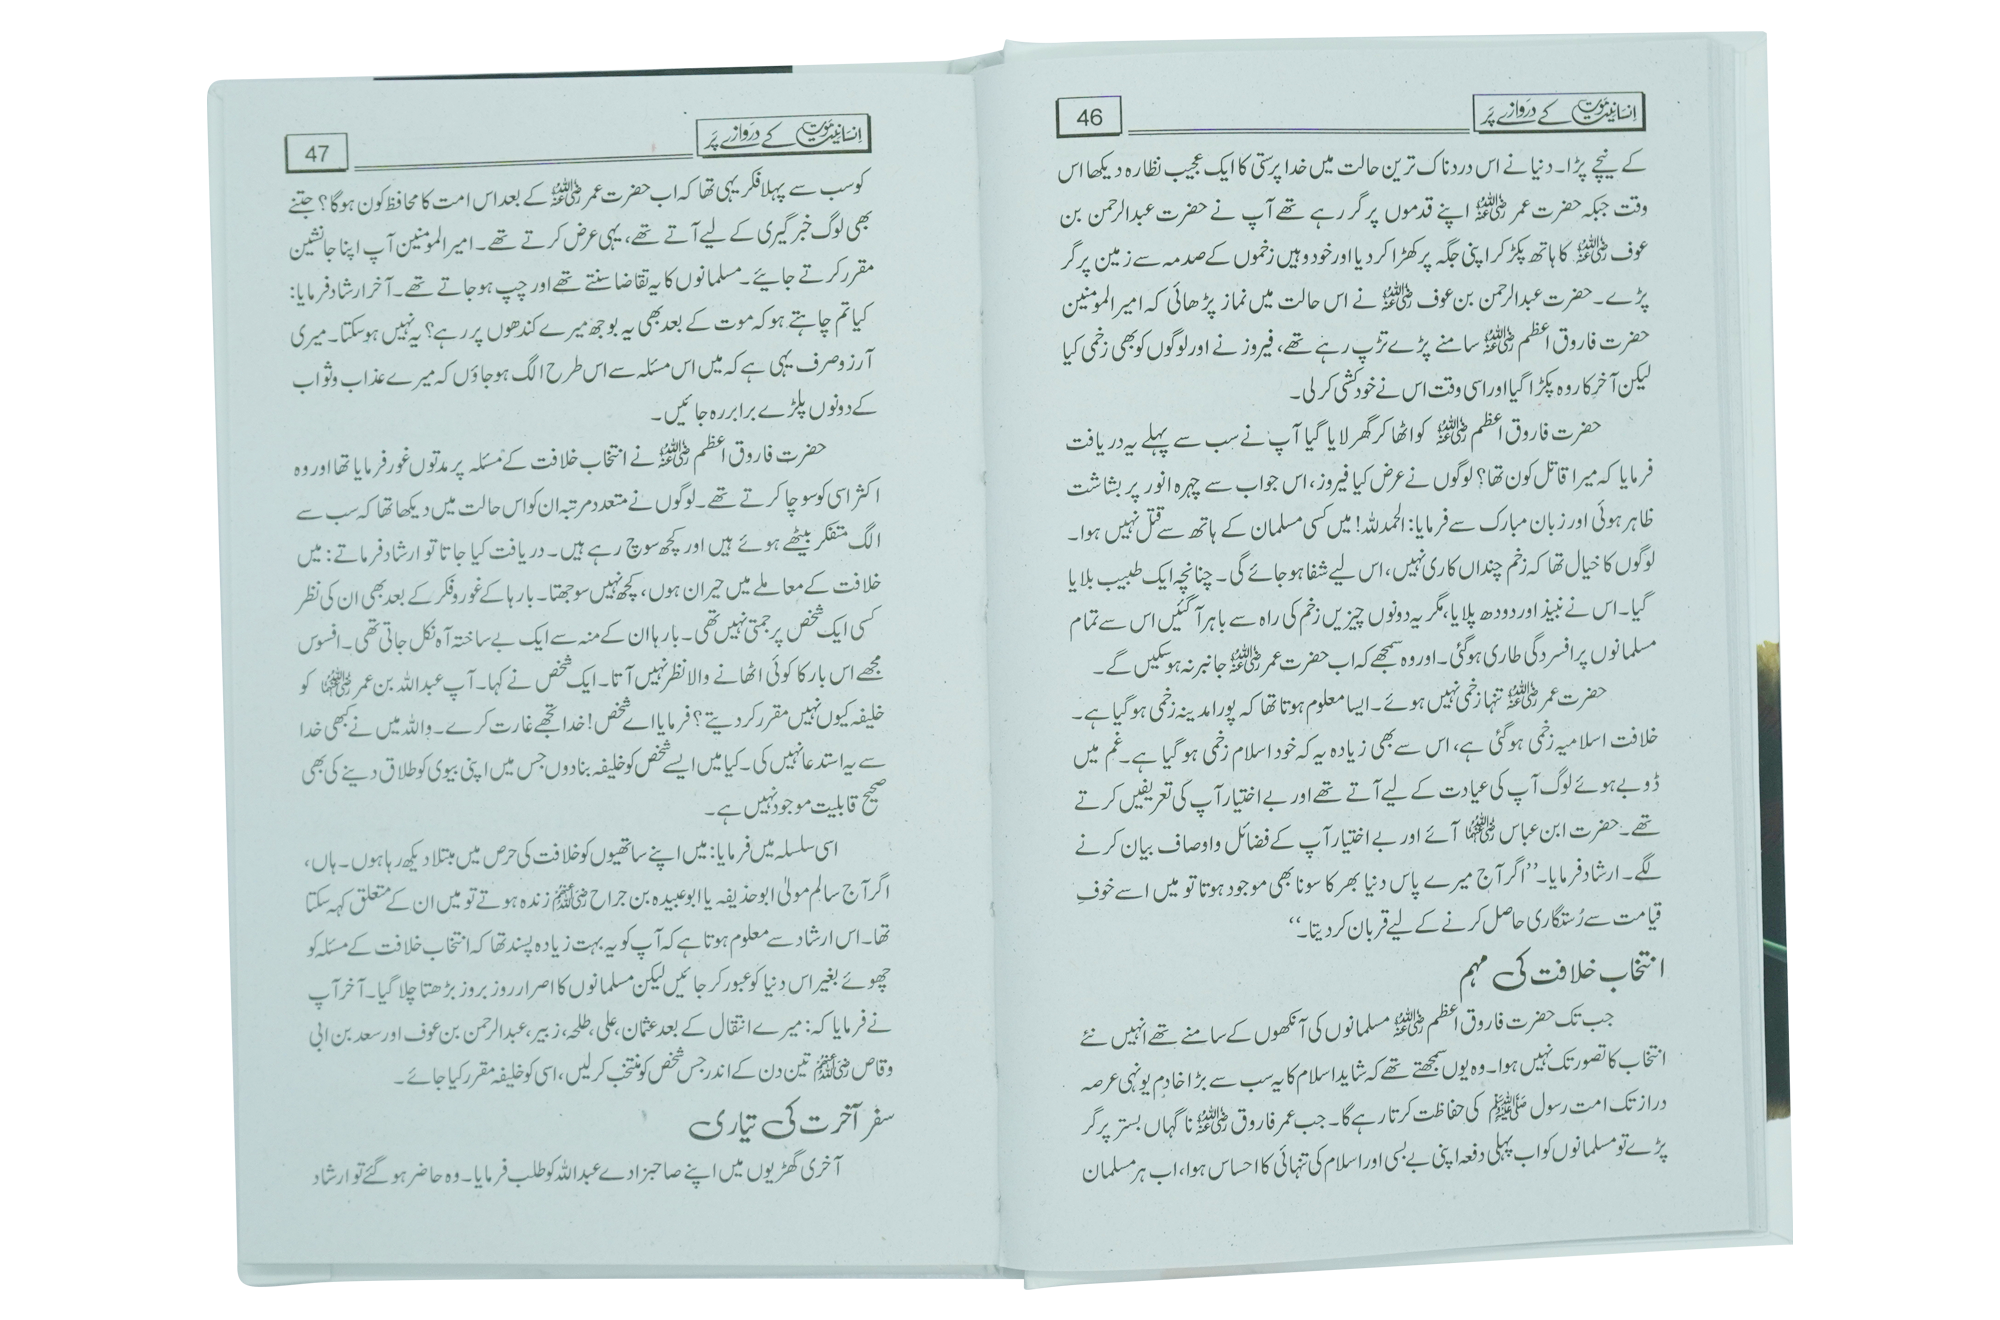 انسانیت موت کے دروازے پر
46
کے نیچے پڑا۔ دنیا نے اس دردناک ترین حالت میں خدا پرستی کا ایک عجیب نظارہ دیکھا اس
وقت جبکہ حضرت عمر رضی اللہ عنہ اپنے قدموں پر گر رہے تھے آپ نے حضرت عبدالرحمن بن
عوف رضی اللہ عنہ کا ہاتھ پکڑ کر اپنی جگہ پر کھڑا کر دیا اور خود وہیں زخموں کے صدمہ سے زمین پر گر
پڑے۔ حضرت عبدالرحمن بن عوف رضی اللہ عنہ نے اس حالت میں نماز پڑھائی کہ امیر المومنین
حضرت فاروق اعظم رضی اللہ عنہ سامنے پڑے تڑپ رہے تھے، فیروز نے اور لوگوں کو بھی زخمی کیا
لیکن آخر کار وہ پکڑا گیا اور اسی وقت اس نے خودکشی کر لی۔
حضرت فاروق اعظم رضی اللہ عنہ کو اٹھا کر گھر لایا گیا آپ نے سب سے پہلے یہ دریافت
فرمایا کہ میرا قاتل کون تھا؟ لوگوں نے عرض کیا فیروز، اس جواب سے چہرہ انور پر بشاشت
ظاہر ہوئی اور زبان مبارک سے فرمایا: الحمدللہ! میں کسی مسلمان کے ہاتھ سے قتل نہیں ہوا۔
لوگوں کا خیال تھا کہ زخم چنداں کاری نہیں، اس لیے شفا ہو جائے گی۔ چنانچہ ایک طبیب بلایا
گیا۔ اس نے نبیذ اور دودھ پلایا، مگر یہ دونوں چیزیں زخم کی راہ سے باہر آ گئیں اس سے تمام
مسلمانوں پر افسردگی طاری ہو گئی۔ اور وہ سمجھے کہ اب حضرت عمر رضی اللہ عنہ جانبر نہ ہو سکیں گے۔
حضرت عمر رضی اللہ عنہ تنہا زخمی نہیں ہوئے۔ ایسا معلوم ہوتا تھا کہ پورا مدینہ زخمی ہو گیا ہے۔
خلافت اسلامیہ زخمی ہو گئی ہے، اس سے بھی زیادہ یہ کہ خود اسلام زخمی ہو گیا ہے۔ غم میں
ڈوبے ہوئے لوگ آپ کی عیادت کے لیے آتے تھے اور بے اختیار آپ کی تعریفیں کرتے
تھے۔ حضرت ابن عباس رضی اللہ عنہما آئے اور بے اختیار آپ کے فضائل و اوصاف بیان کرنے
لگے۔ ارشاد فرمایا۔ ’’اگر آج میرے پاس دنیا بھر کا سونا بھی موجود ہوتا تو میں اسے خوفِ
قیامت سے رُستگاری حاصل کرنے کے لیے قربان کر دیتا۔‘‘
انتخاب خلافت کی مہم
جب تک حضرت فاروق اعظم رضی اللہ عنہ مسلمانوں کی آنکھوں کے سامنے تھے انہیں نئے
انتخاب کا تصور تک نہیں ہوا۔ وہ یوں سمجھتے تھے کہ شاید اسلام کا یہ سب سے بڑا خادم یونہی عرصہ
دراز تک امت رسول صلی اللہ علیہ وسلم کی حفاظت کرتا رہے گا۔ جب عمر فاروق رضی اللہ عنہ ناگہاں بستر پر گر
پڑے تو مسلمانوں کو اب پہلی دفعہ اپنی بے بسی اور اسلام کی تنہائی کا احساس ہوا، اب ہر مسلمان
انسانیت موت کے دروازے پر
47
کو سب سے پہلا فکر یہی تھا کہ اب حضرت عمر رضی اللہ عنہ کے بعد اس امت کا محافظ کون ہوگا؟ جتنے
بھی لوگ خبر گیری کے لیے آتے تھے، یہی عرض کرتے تھے۔ امیر المومنین آپ اپنا جانشین
مقرر کرتے جائیے۔ مسلمانوں کا یہ تقاضا سنتے تھے اور چپ ہو جاتے تھے۔ آخر ارشاد فرمایا:
کیا تم چاہتے ہو کہ موت کے بعد بھی یہ بوجھ میرے کندھوں پر رہے؟ یہ نہیں ہو سکتا۔ میری
آرزو صرف یہی ہے کہ میں اس مسئلہ سے اس طرح الگ ہو جاؤں کہ میرے عذاب و ثواب
کے دونوں پلڑے برابر رہ جائیں۔
حضرت فاروق اعظم رضی اللہ عنہ نے انتخاب خلافت کے مسئلہ پر مدتوں غور فرمایا تھا اور وہ
اکثر اسی کو سوچا کرتے تھے۔ لوگوں نے متعدد مرتبہ ان کو اس حالت میں دیکھا تھا کہ سب سے
الگ متفکر بیٹھے ہوئے ہیں اور کچھ سوچ رہے ہیں۔ دریافت کیا جاتا تو ارشاد فرماتے: میں
خلافت کے معاملے میں حیران ہوں، کچھ نہیں سوجھتا۔ بارہا کے غور و فکر کے بعد بھی ان کی نظر
کسی ایک شخص پر جمتی نہیں تھی۔ بارہا ان کے منہ سے ایک بے ساختہ آہ نکل جاتی تھی۔ افسوس
مجھے اس بار کا کوئی اٹھانے والا نظر نہیں آتا۔ ایک شخص نے کہا۔ آپ عبداللہ بن عمر رضی اللہ عنہما کو
خلیفہ کیوں نہیں مقرر کر دیتے؟ فرمایا اے شخص! خدا تجھے غارت کرے۔ واللہ میں نے کبھی خدا
سے یہ استدعا نہیں کی۔ کیا میں ایسے شخص کو خلیفہ بنا دوں جس میں اپنی بیوی کو طلاق دینے کی بھی
صحیح قابلیت موجود نہیں ہے۔
اسی سلسلہ میں فرمایا: میں اپنے ساتھیوں کو خلافت کی حرص میں مبتلا دیکھ رہا ہوں۔ ہاں،
اگر آج سالم مولیٰ ابو حذیفہ یا ابوعبیدہ بن جراح رضی اللہ عنہم زندہ ہوتے تو میں ان کے متعلق کہہ سکتا
تھا۔ اس ارشاد سے معلوم ہوتا ہے کہ آپ کو یہ بہت زیادہ پسند تھا کہ انتخاب خلافت کے مسئلہ کو
چھوئے بغیر اس دنیا کو عبور کر جائیں لیکن مسلمانوں کا اصرار روز بروز بڑھتا چلا گیا۔ آخر آپ
نے فرمایا کہ: میرے انتقال کے بعد عثمان، علی، طلحہ، زبیر، عبدالرحمن بن عوف اور سعد بن ابی
وقاص رضی اللہ عنہم تین دن کے اندر جس شخص کو منتخب کر لیں، اسی کو خلیفہ مقرر کیا جائے۔
سفر آخرت کی تیاری
آخری گھڑیوں میں اپنے صاحبزادے عبداللہ کو طلب فرمایا۔ وہ حاضر ہو گئے تو ارشاد